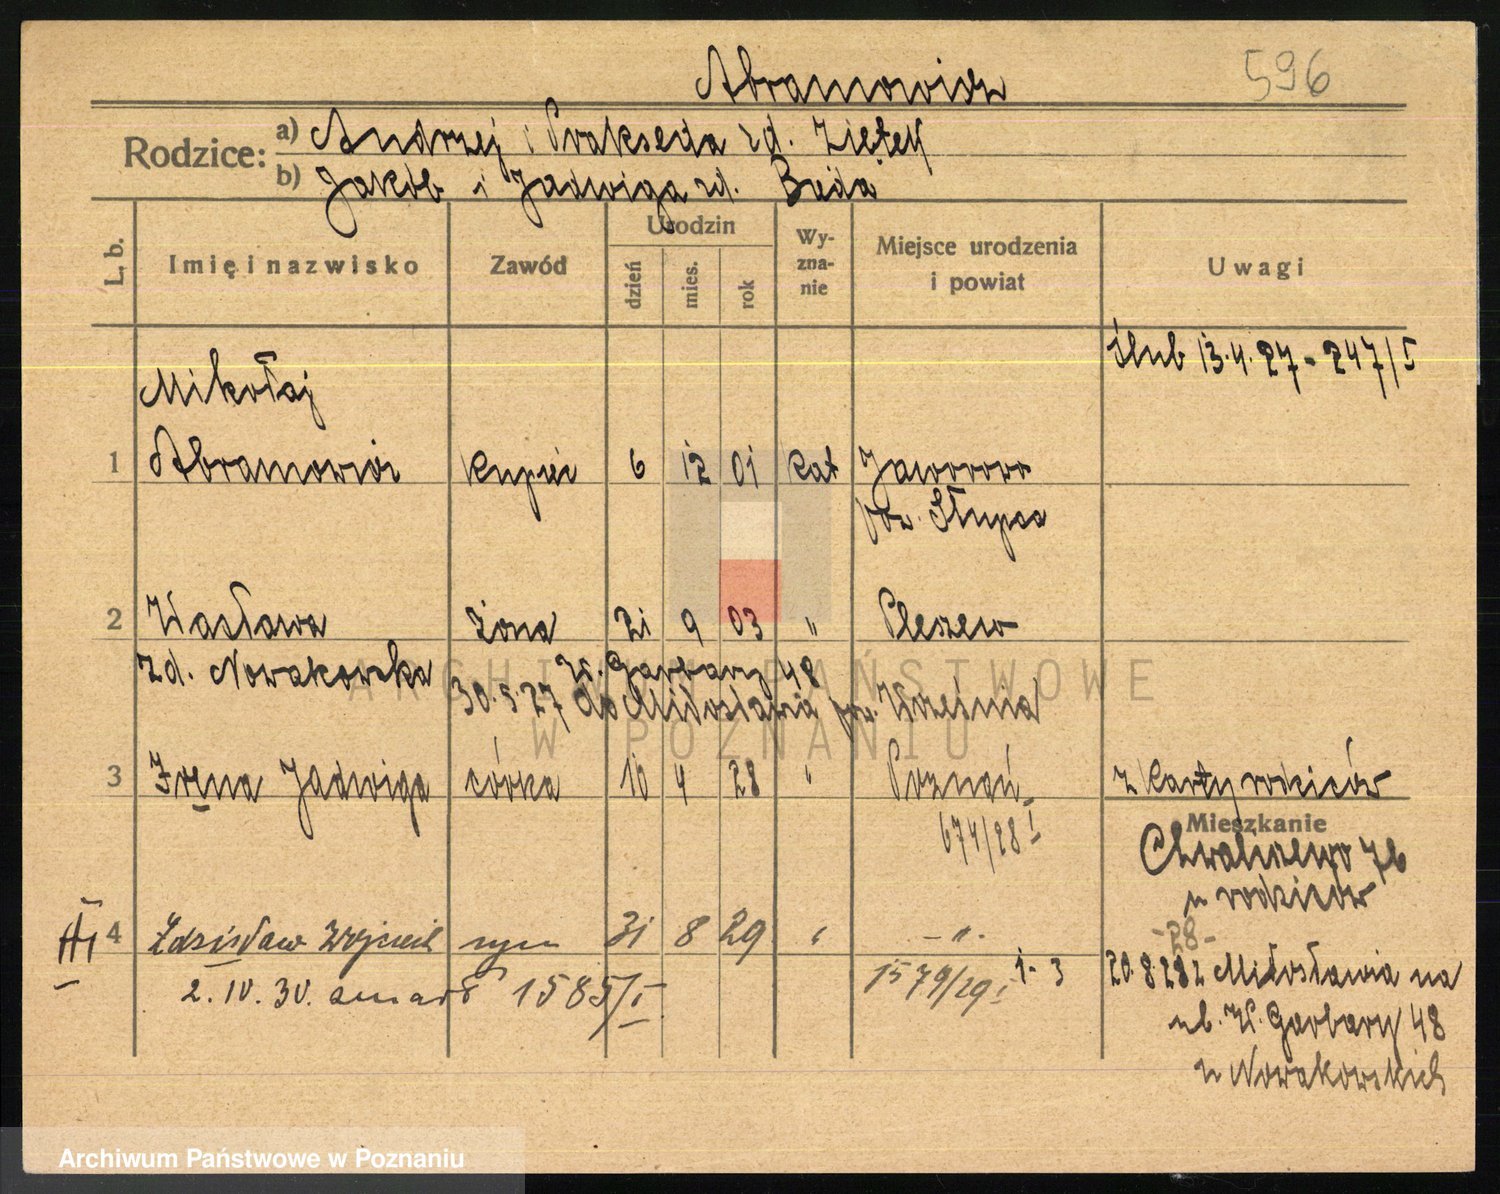 596
Abramowicz
Rodzice: a) Andrzej i Prakseda zd. Ziętek
b) Jakób i Jadwiga zd. Buda
L. b.
Imię i nazwisko
Zawód
Urodzin
dzień
mies.
rok
Wy-
zna-
nie
Miejsce urodzenia
i powiat
Uwagi
ślub 13.4.27 - 247/I
Mikołaj
1 Abramowicz kupiec 6 12 01 kat Jaworowo
pow. Słupca
2 Wacława żona 21 9 03 " Pleszew
zd. Nowakowska W. Garbary 48
30.5.27 do Miłosławia pow. Września
3 Irena Jadwiga córka 10 4 28 " Poznań z karty rodziców
674/28 I
Mieszkanie
Chwaliszewo 76
u rodziców
III 4 Zdzisław Wojciech syn 31 8 29 " - " -
-28-
2. IV. 30. zmarł 1585/I
1579/29 I 1-3
20.8.28 z Miłosławia na
ul. W. Garbary 48
u Nowakowskich
ARCHIWUM PAŃSTWOWE
W POZNANIU
Archiwum Państwowe w Poznaniu